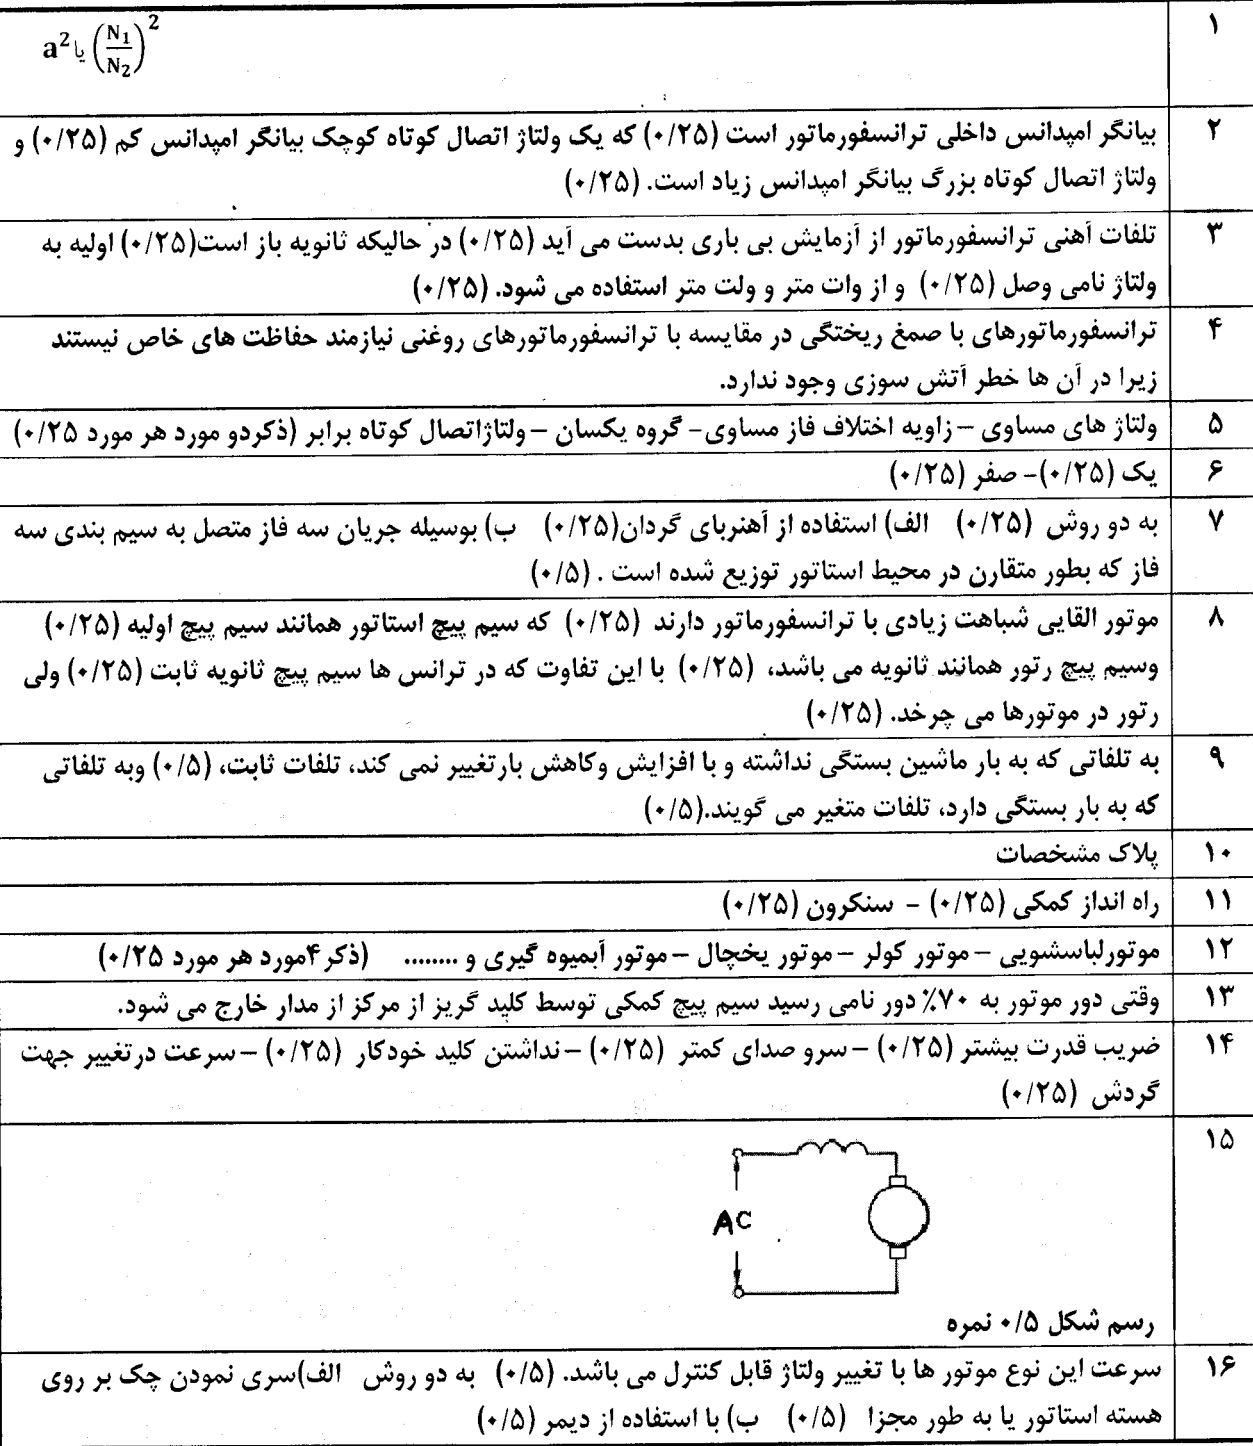 ۱
a² یا (N₁/N₂)²
۲ بیانگر امپدانس داخلی ترانسفورماتور است (۰/۲۵) که یک ولتاژ اتصال کوتاه کوچک بیانگر امپدانس کم (۰/۲۵) و
ولتاژ اتصال کوتاه بزرگ بیانگر امپدانس زیاد است. (۰/۲۵)
۳ تلفات آهنی ترانسفورماتور از آزمایش بی باری بدست می آید (۰/۲۵) در حالیکه ثانویه باز است(۰/۲۵) اولیه به
ولتاژ نامی وصل (۰/۲۵) و از وات متر و ولت متر استفاده می شود. (۰/۲۵)
۴ ترانسفورماتورهای با صمغ ریختگی در مقایسه با ترانسفورماتورهای روغنی نیازمند حفاظت های خاص نیستند
زیرا در آن ها خطر آتش سوزی وجود ندارد.
۵ ولتاژ های مساوی – زاویه اختلاف فاز مساوی- گروه یکسان – ولتاژاتصال کوتاه برابر (ذکردو مورد هر مورد ۰/۲۵)
۶ یک (۰/۲۵)- صفر (۰/۲۵)
۷ به دو روش (۰/۲۵) الف) استفاده از آهنربای گردان(۰/۲۵) ب) بوسیله جریان سه فاز متصل به سیم بندی سه
فاز که بطور متقارن در محیط استاتور توزیع شده است . (۰/۵)
۸ موتور القایی شباهت زیادی با ترانسفورماتور دارند (۰/۲۵) که سیم پیچ استاتور همانند سیم پیچ اولیه (۰/۲۵)
وسیم پیچ رتور همانند ثانویه می باشد، (۰/۲۵) با این تفاوت که در ترانس ها سیم پیچ ثانویه ثابت (۰/۲۵) ولی
رتور در موتورها می چرخد. (۰/۲۵)
۹ به تلفاتی که به بار ماشین بستگی نداشته و با افزایش وکاهش بارتغییر نمی کند، تلفات ثابت، (۰/۵) وبه تلفاتی
که به بار بستگی دارد، تلفات متغیر می گویند.(۰/۵)
۱۰ پلاک مشخصات
۱۱ راه انداز کمکی (۰/۲۵) - سنکرون (۰/۲۵)
۱۲ موتورلباسشویی – موتور کولر – موتور یخچال – موتور آبمیوه گیری و ........ (ذکر ۴مورد هر مورد ۰/۲۵)
۱۳ وقتی دور موتور به ۷۰٪ دور نامی رسید سیم پیچ کمکی توسط کلید گریز از مرکز از مدار خارج می شود.
۱۴ ضریب قدرت بیشتر (۰/۲۵) – سرو صدای کمتر (۰/۲۵) – نداشتن کلید خودکار (۰/۲۵) – سرعت درتغییر جهت
گردش (۰/۲۵)
۱۵
AC
رسم شکل ۰/۵ نمره
۱۶ سرعت این نوع موتور ها با تغییر ولتاژ قابل کنترل می باشد. (۰/۵) به دو روش الف)سری نمودن چک بر روی
هسته استاتور یا به طور مجزا (۰/۵) ب) با استفاده از دیمر (۰/۵)